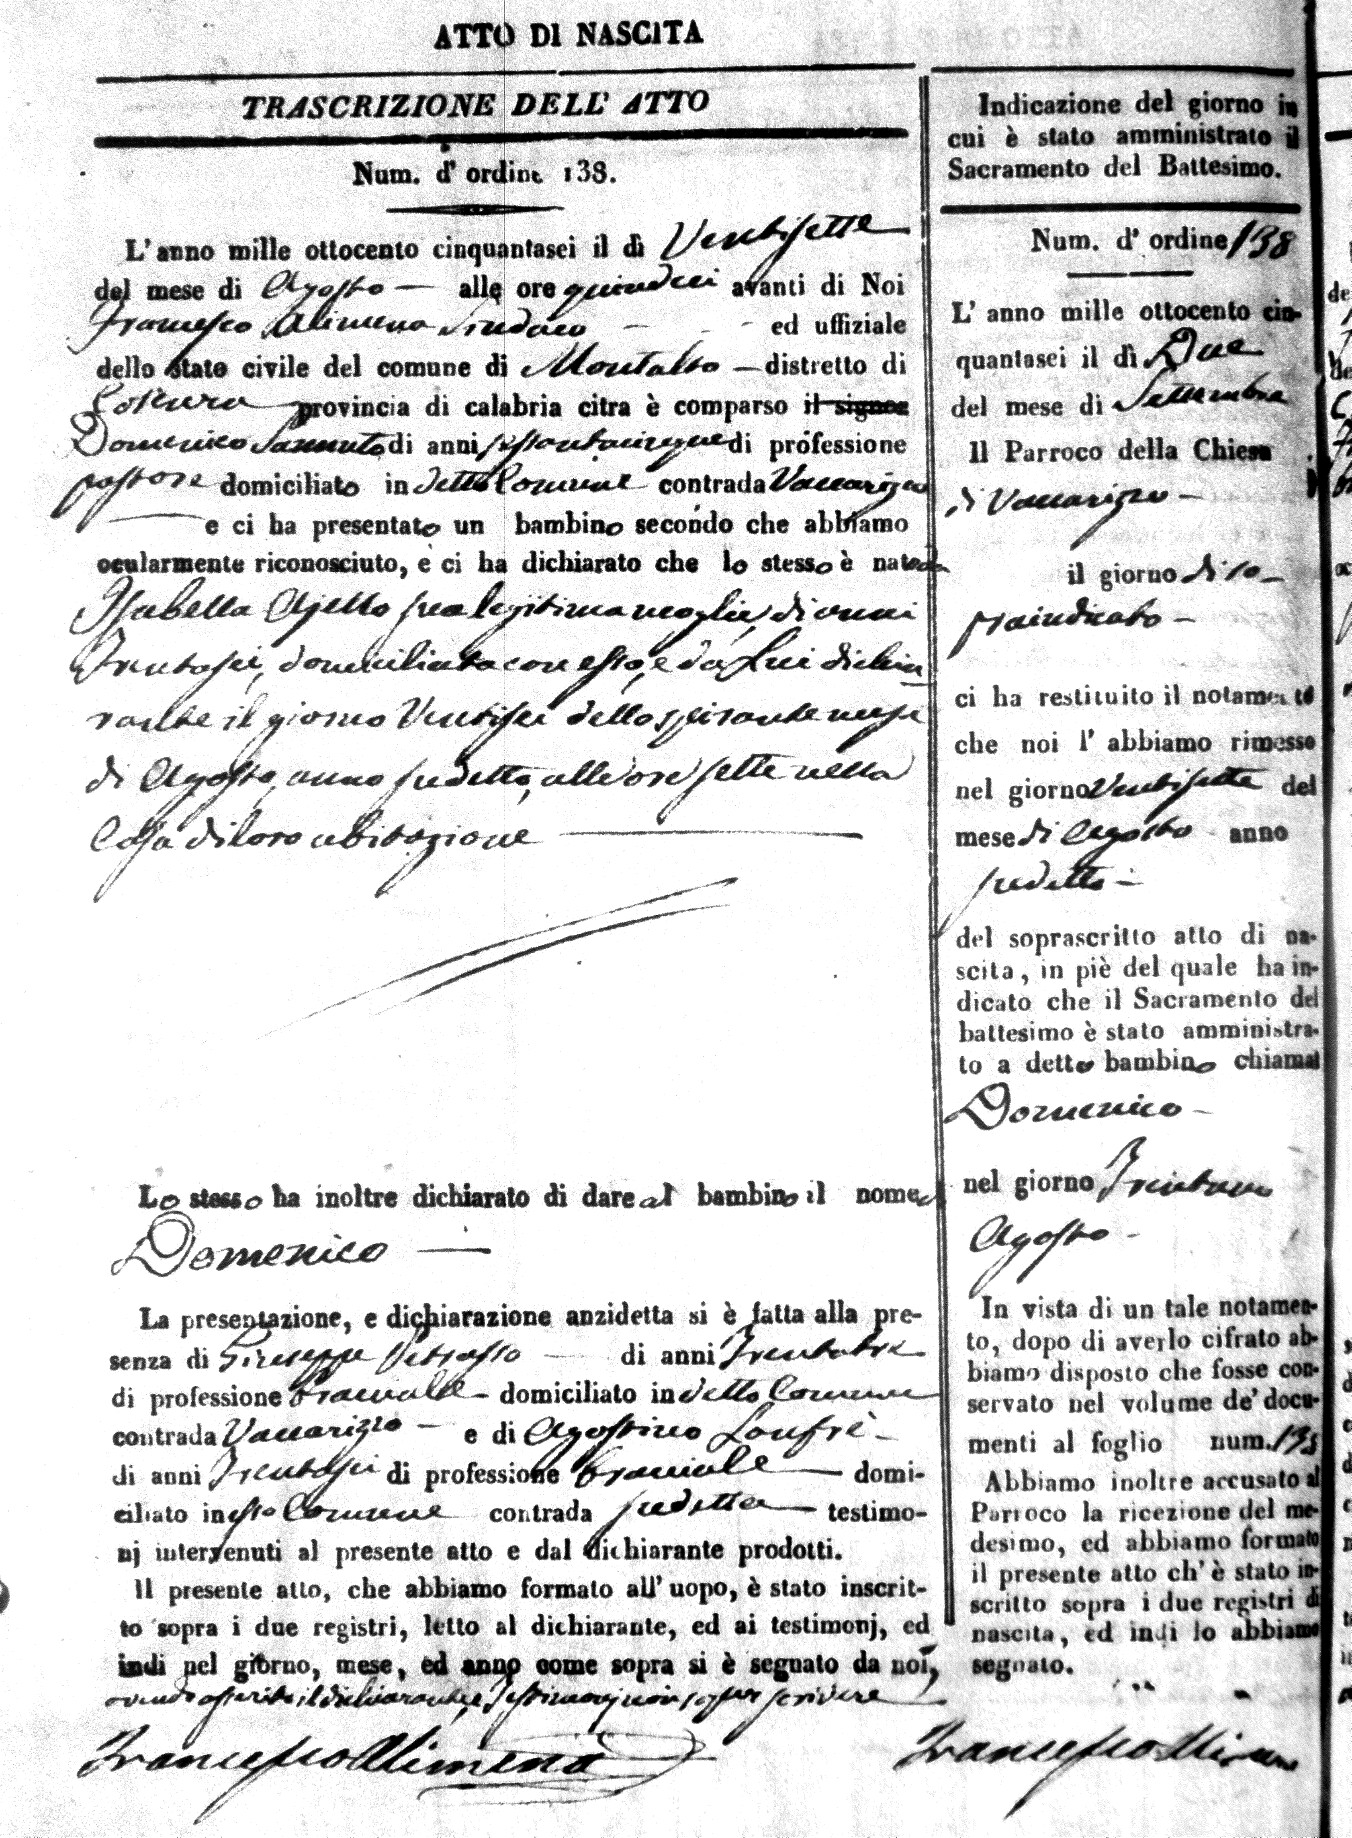 ATTO DI NASCITA
TRASCRIZIONE DELL' ATTO
Num. d' ordine 138.
L' anno mille ottocento cinquantasei il dì Ventisette
del mese di Agosto alle ore quindici avanti di Noi
Francesco Alimena Sindaco ed uffiziale
dello stato civile del comune di Montalto distretto di
Cosenza provincia di calabria citra è comparso il signor
Domenico Sannuto di anni sessantacinque di professione
pastore domiciliato in detto Comune contrada Vaccarizzo
e ci ha presentato un bambino secondo che abbiamo
ocularmente riconosciuto, e ci ha dichiarato che lo stesso è nato da
Isabella Ajello sua legitima moglie, di anni
Trentasei, domiciliata con esso, e da Lui dichia
rante il giorno Ventisei dello spirante mese
di Agosto, anno sudetto, alle ore sette nella
Casa di loro abitazione
Lo stesso ha inoltre dichiarato di dare al bambino il nome di
Domenico
La presentazione, e dichiarazione anzidetta si è fatta alla pre-
senza di Giuseppe Petrasso di anni Trentatre
di professione Bracciale domiciliato in detto Comune
contrada Vaccarizzo e di Agostino Lanfrè
di anni Trentasei di professione Bracciale domi-
ciliato in esso Comune contrada sudetta testimo-
nj intervenuti al presente atto e dal dichiarante prodotti.
Il presente atto, che abbiamo formato all' uopo, è stato inscrit-
to sopra i due registri, letto al dichiarante, ed ai testimonj, ed
indi nel giorno, mese, ed anno come sopra si è segnato da noi,
avendo asserito il dichiarante, e Testimonj non saper scrivere
Francesco Alimena
Indicazione del giorno in
cui è stato amministrato il
Sacramento del Battesimo.
Num. d' ordine 138
L' anno mille ottocento cin-
quantasei il dì Due
del mese di Settembre
Il Parroco della Chiesa
di Vaccarizzo
il giorno di so
praindicato
ci ha restituito il notamento
che noi l' abbiamo rimesso
nel giorno Ventisette del
mese di Agosto anno
sudetto
del soprascritto atto di na-
scita, in piè del quale ha in-
dicato che il Sacramento del
battesimo è stato amministra-
to a detto bambino chiamat
Domenico
nel giorno Trentuno
Agosto
In vista di un tale notamen-
to, dopo di averlo cifrato ab-
biamo disposto che fosse con-
servato nel volume de' docu-
menti al foglio num. 138
Abbiamo inoltre accusato al
Parroco la ricezione del me-
desimo, ed abbiamo formato
il presente atto ch' è stato in-
scritto sopra i due registri di
nascita, ed indi lo abbiamo
segnato.
Francesco Alimena